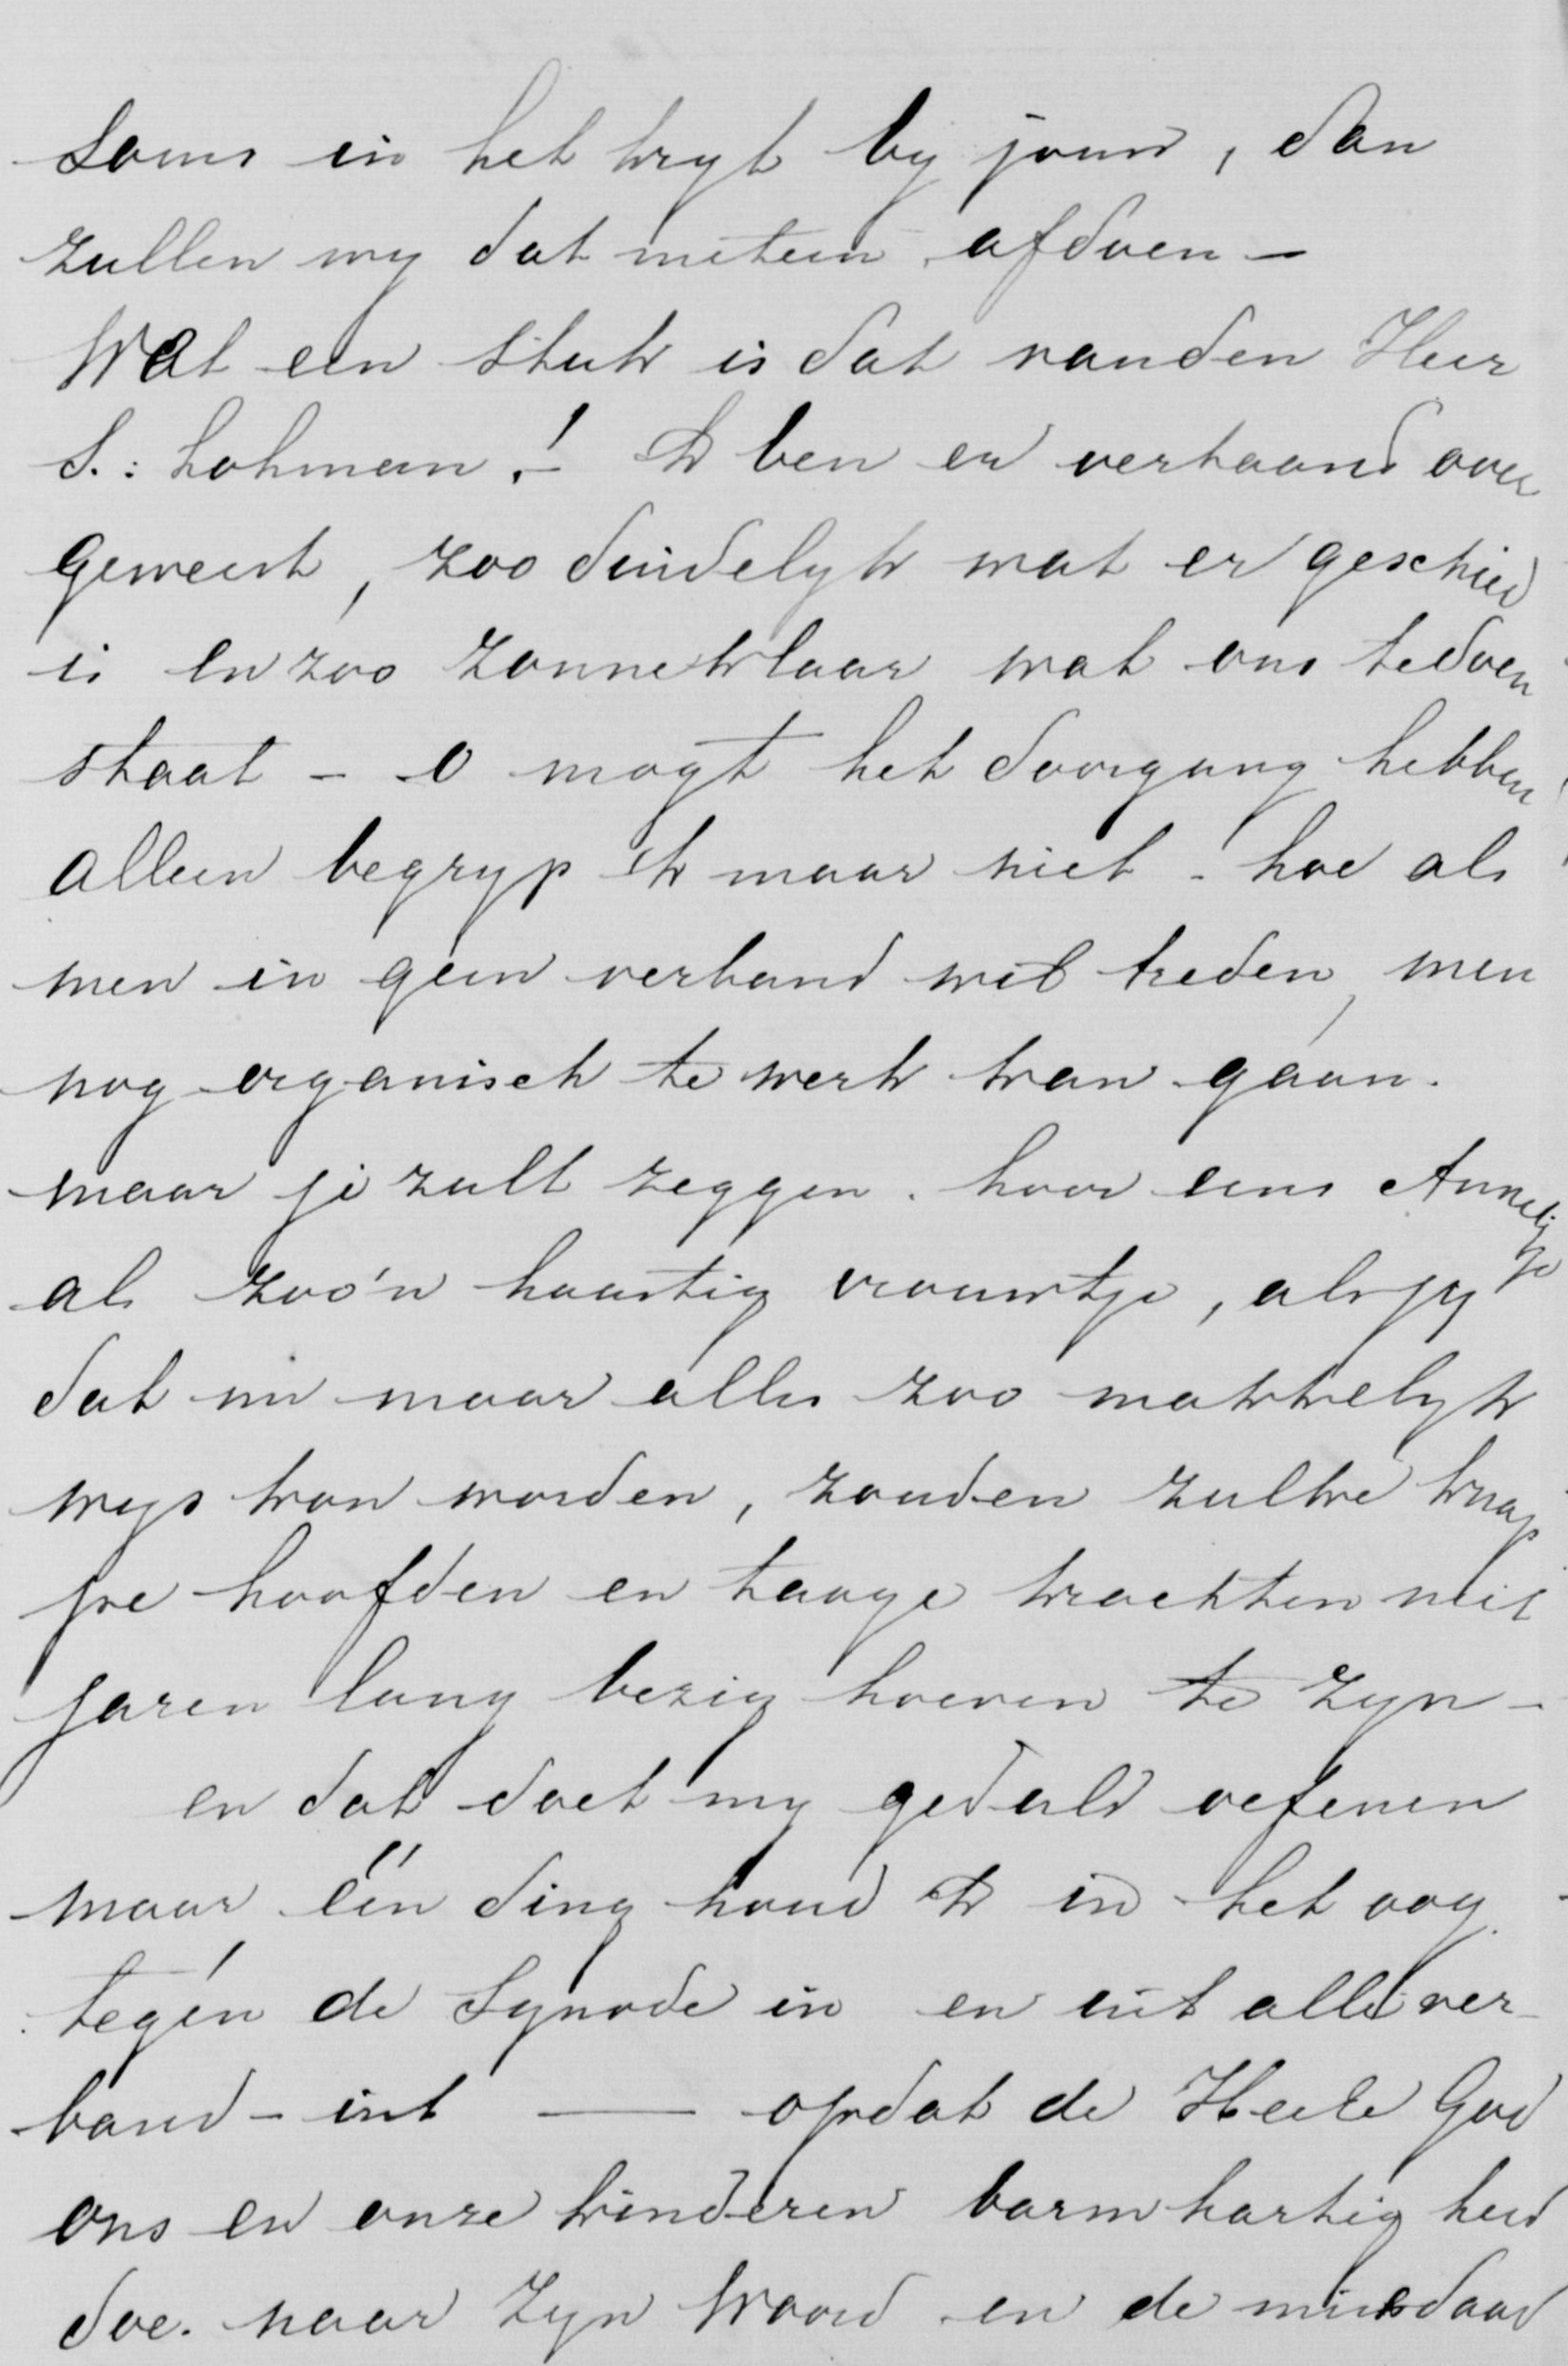 soms in het kryt by jouw, dan
zullen wy dat meteen afdoen –
Wat een stuk is dat van den Heer
S.: Lohman! – Ik ben er verbaasd over
geweest, zoo duidelyk wat er geschied
is en zoo zonneklaar wat ons te doen
staat – O mogt het doorgang hebben
alleen begryp ik maar niet – hoe als
men in géén verband wil treden, men
nog organisch te werk kan gáán.
maar je zult zeggen. hoor eens Annetje
als zoo'n haastig vrouwtje, als jy
dat nu maar alles zoo makkelyk
wys kon worden, zouden zulke knap
pe hoofden en taaye krachten niet
jaren lang bezig hoeven te zyn –
en dat doet my geduld oefenen
maar één ding houd ik in het oog
tegen de Synode in en uit alle ver-
band – uit — opdat de Heere God
ons en onze kinderen barmhartigheid
doe. naar Zyn Woord en de misdaad